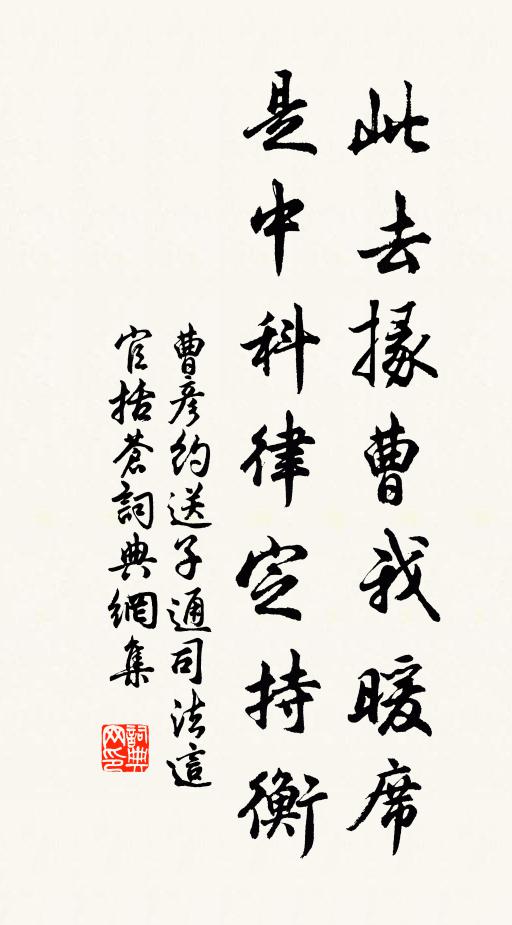 此去掾曹我暖席
是中科律定持衡
曹彥約送子通司法這
官括蒼詞典網集
詞典网印